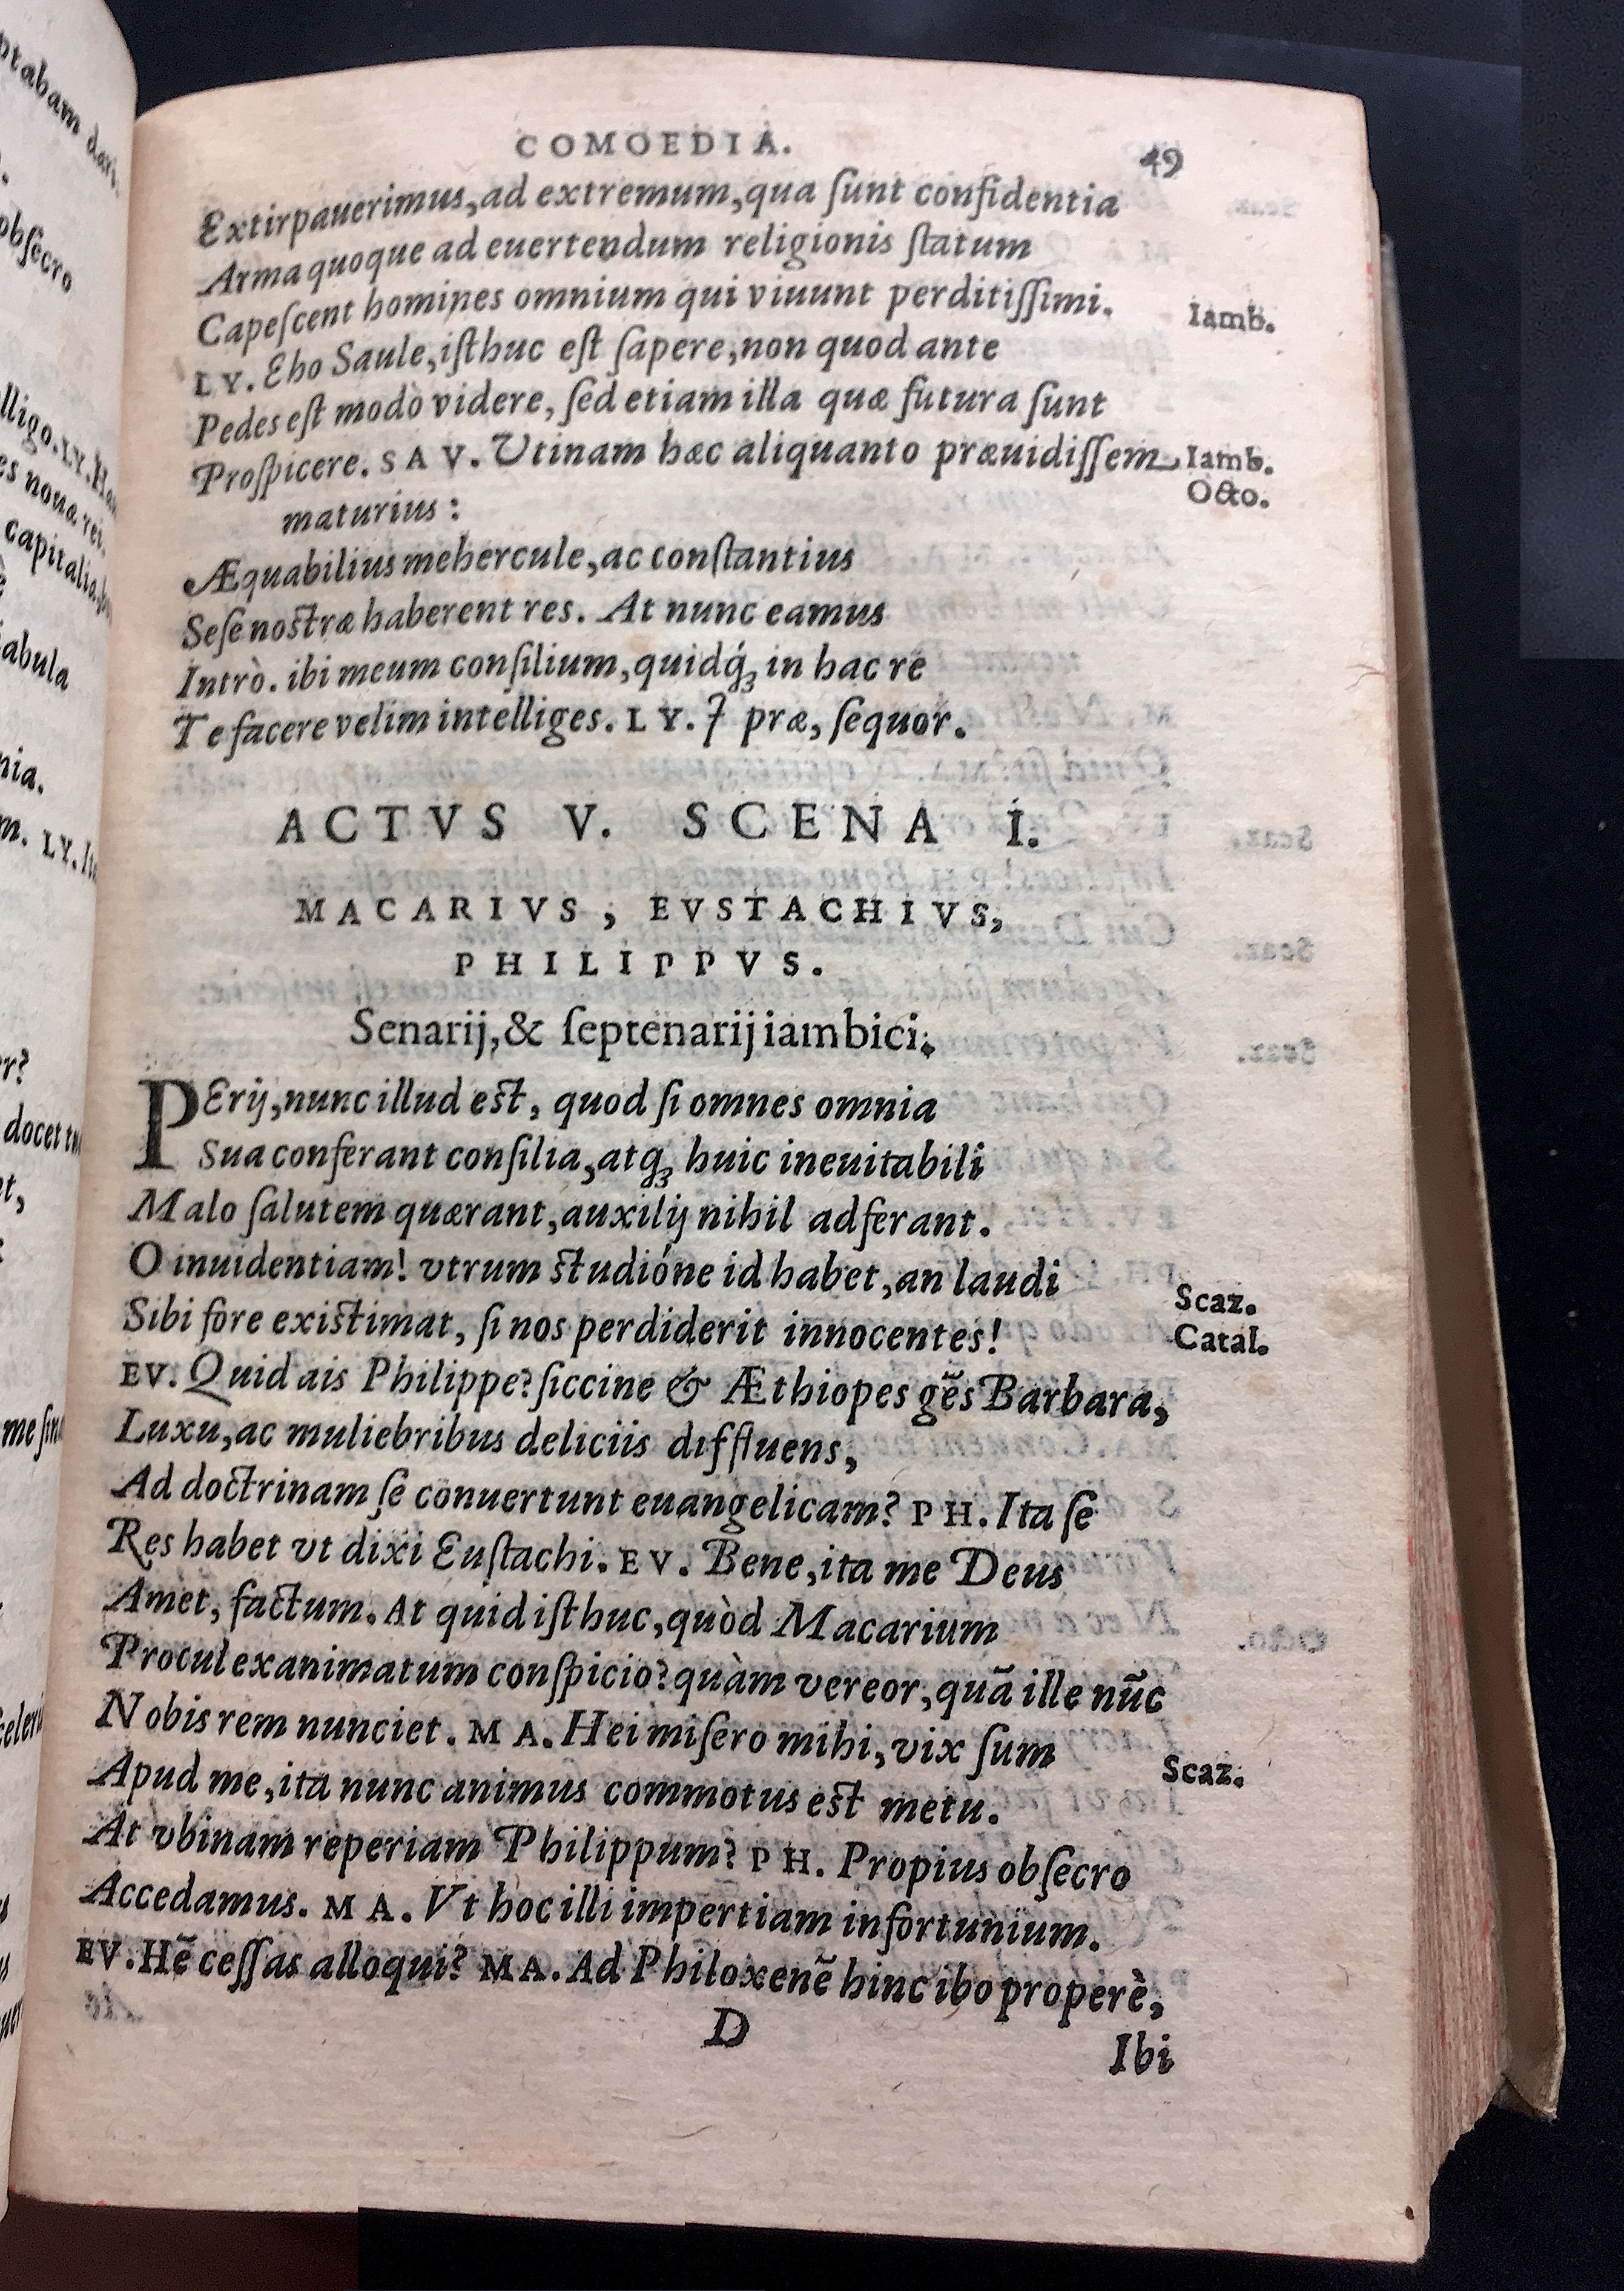 COMOEDIA. 49
Extirpauerimus, ad extremum, qua ſunt confidentia
Arma quoque ad euertendum religionis ſtatum
Capeſcent homines omnium qui viuunt perditiſſimi.
Iamb.
LY. Eho Saule, iſthuc eſt ſapere, non quod ante
Pedes eſt modò videre, ſed etiam illa quæ futura ſunt
Proſpicere. SAV. Utinam hæc aliquanto præuidiſſem
Iamb.
Octo.
maturius:
Æquabilius mehercule, ac conſtantius
Seſe noſtræ haberent res. At nunc eamus
Intrò. ibi meum conſilium, quidq́ꝫ in hac re
Te facere velim intelliges. LY. I præ, ſequor.
ACTVS V. SCENA I.
MACARIVS, EVSTACHIVS,
PHILIPPVS.
Senarij, & ſeptenarij iambici.
PErij, nunc illud eſt, quod ſi omnes omnia
Sua conferant conſilia, atqꝫ huic ineuitabili
Malo ſalutem quærant, auxilij nihil adferant.
O inuidentiam! vtrum ſtudióne id habet, an laudi
Scaz.
Sibi fore exiſtimat, ſi nos perdiderit innocentes!
Catal.
EV. Quid ais Philippe? ſiccine & Æthiopes gẽs Barbara,
Luxu, ac muliebribus deliciis diffluens,
Ad doctrinam ſe conuertunt euangelicam? PH. Ita ſe
Res habet vt dixi Euſtachi. EV. Bene, ita me Deus
Amet, factum. At quid iſthuc, quòd Macarium
Procul exanimatum conſpicio? quàm vereor, quã ille nũc
Nobis rem nunciet. MA. Hei miſero mihi, vix ſum
Scaz.
Apud me, ita nunc animus commotus eſt metu.
At vbinam reperiam Philippum? PH. Propius obſecro
Accedamus. MA. Vt hoc illi impertiam infortunium.
EV. Hẽ ceſſas alloqui? MA. Ad Philoxenẽ hinc ibo properè,
D
Ibi